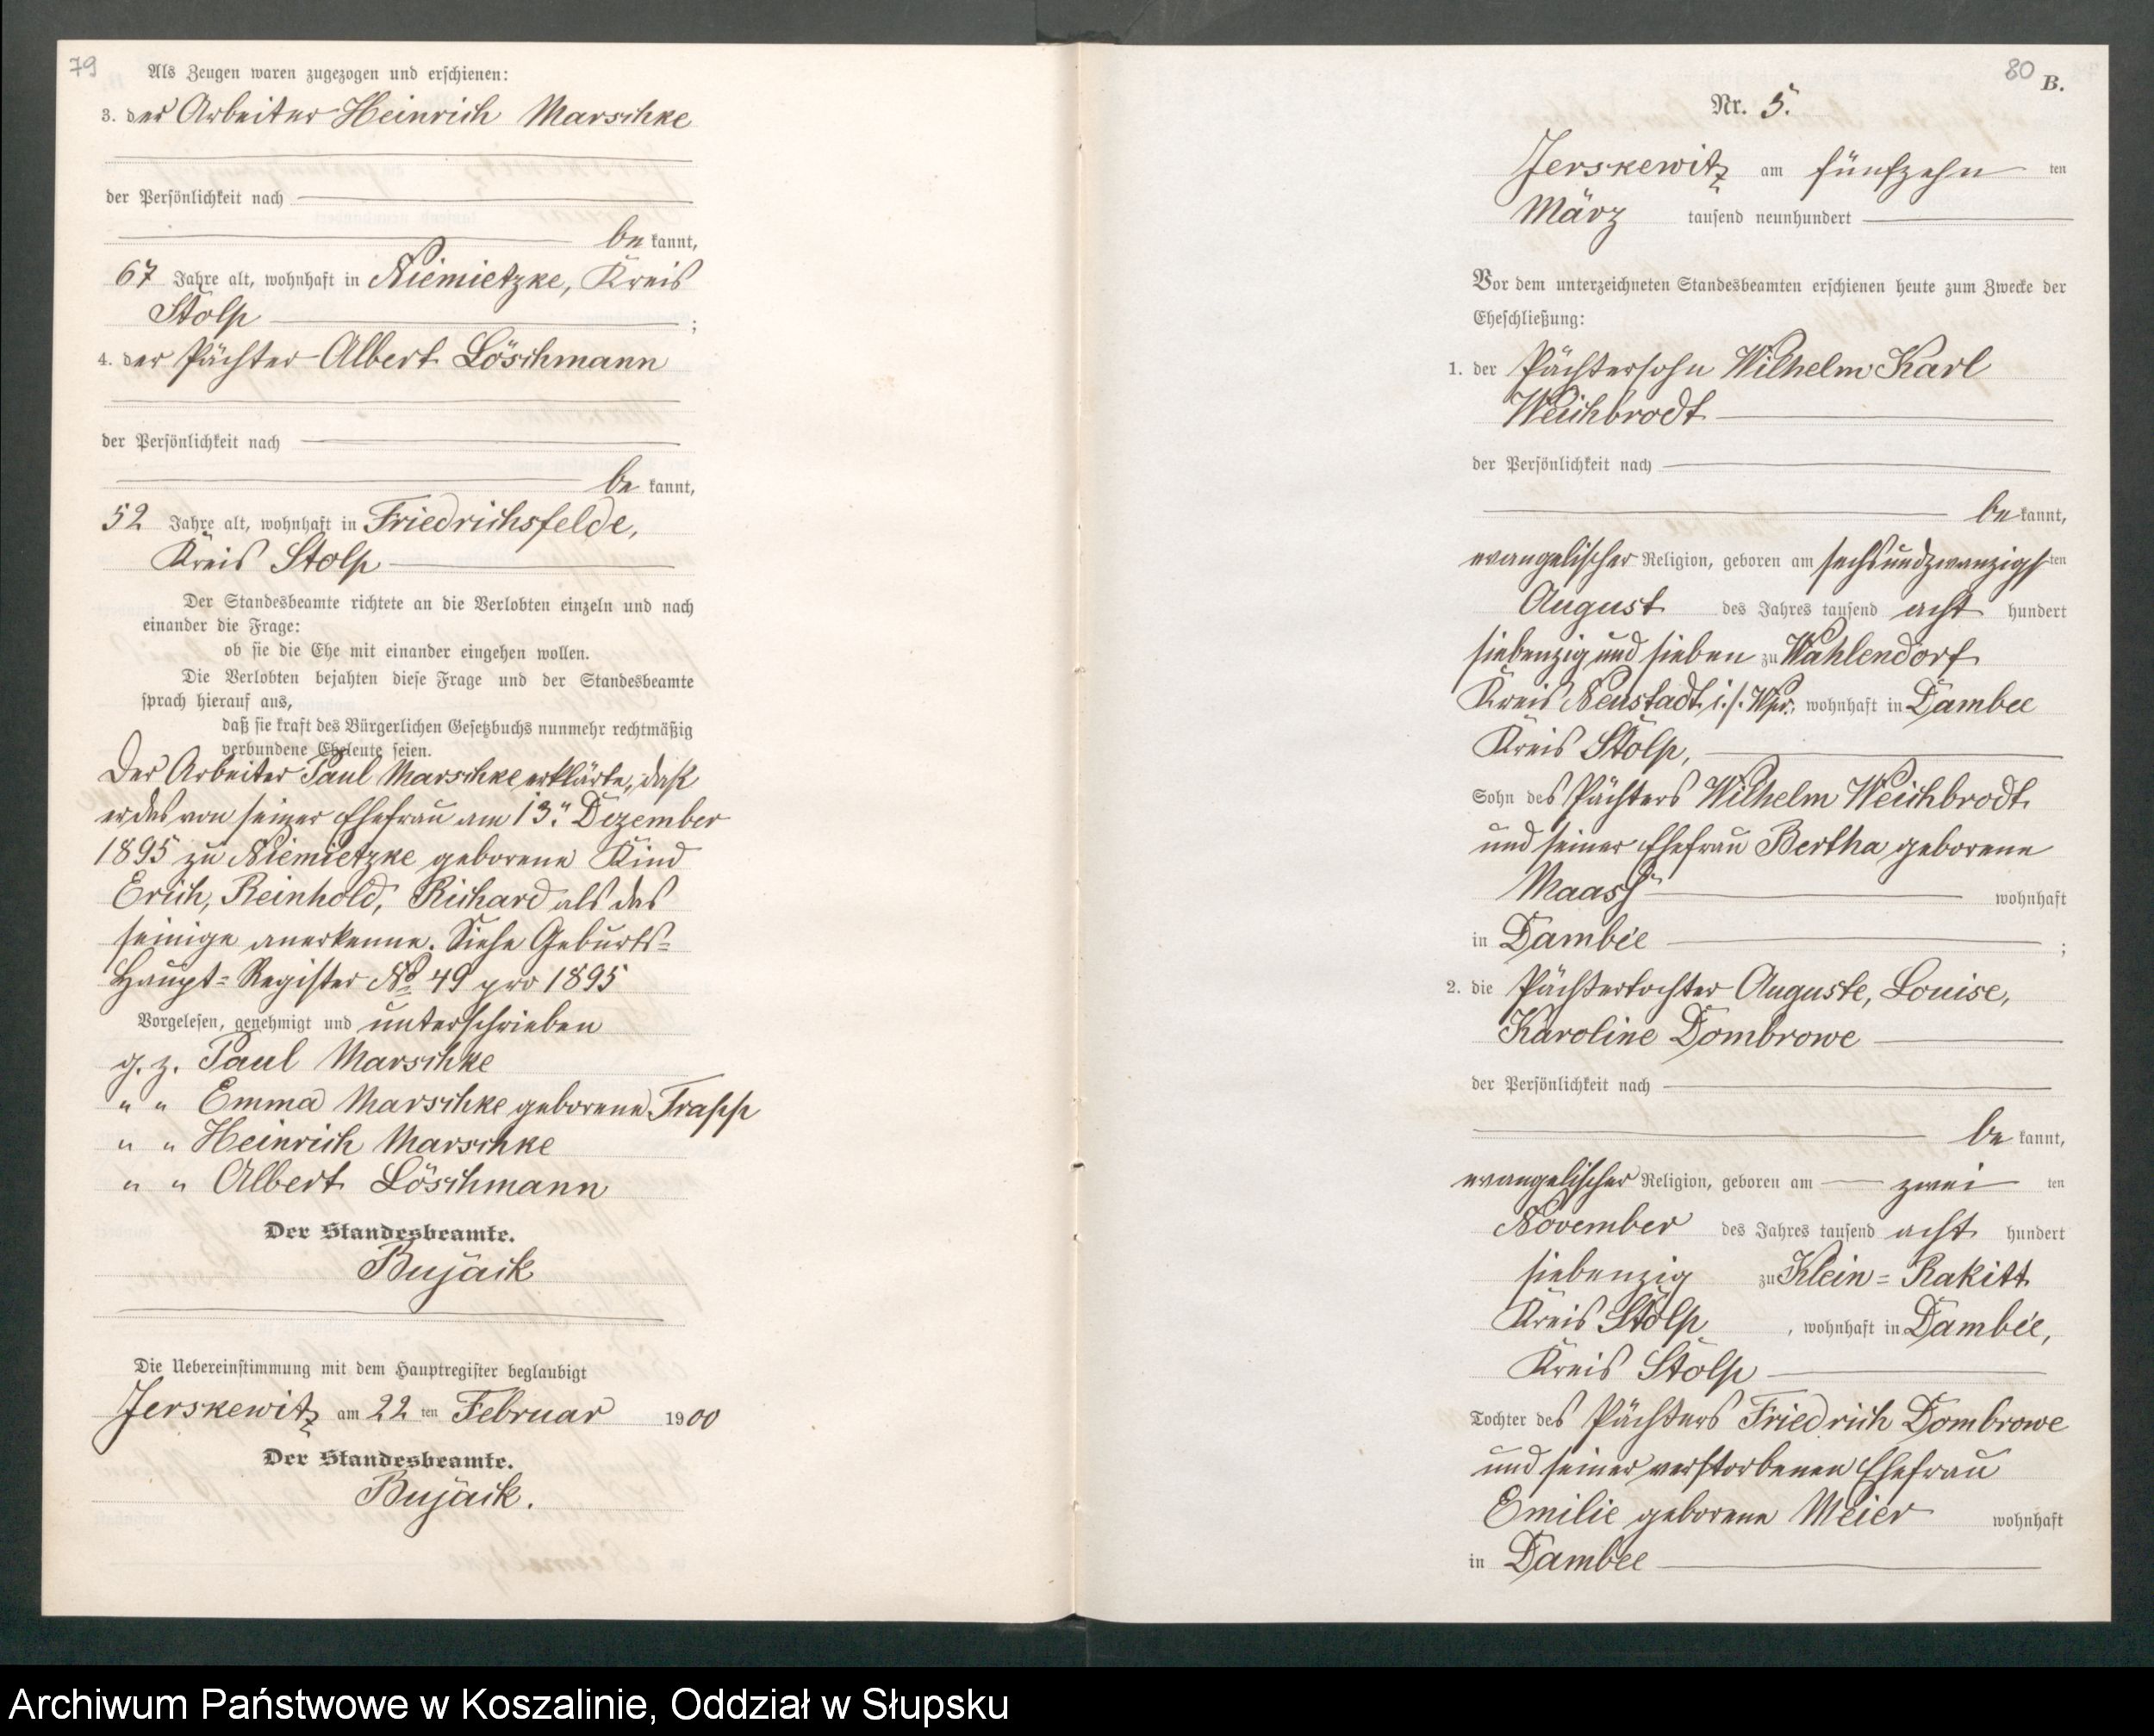 79
Als Zeugen waren zugezogen und erschienen:
3. der Arbeiter Heinrich Marschke
der Persönlichkeit nach
be kannt,
67 Jahre alt, wohnhaft in Niemietzke, Kreis
Stolp ;
4. der Pächter Albert Löschmann
der Persönlichkeit nach
be kannt,
52 Jahre alt, wohnhaft in Friedrichsfelde,
Kreis Stolp
Der Standesbeamte richtete an die Verlobten einzeln und nach
einander die Frage:
ob sie die Ehe mit einander eingehen wollen.
Die Verlobten bejahten diese Frage und der Standesbeamte
sprach hierauf aus,
daß sie kraft des Bürgerlichen Gesetzbuchs nunmehr rechtmäßig
verbundene Eheleute seien.
Der Arbeiter Paul Marschke erklärte, daß
er das von seiner Ehefrau am 13. Dezember
1895 zu Niemietzke geborene Kind
Erich, Reinhold, Richard als das
seinige anerkenne. Siehe Geburts-
Haupt-Register No 49 pro 1895
Vorgelesen, genehmigt und unterschrieben
g. z. Paul Marschke
" " Emma Marschke geborene Trapp
" " Heinrich Marschke
" " Albert Löschmann
Der Standesbeamte.
Bujack
Die Uebereinstimmung mit dem Hauptregister beglaubigt
Jerskewitz am 22 ten Februar 1900
Der Standesbeamte.
Bujack.
80
B.
Nr. 5.
Jerskewitz am fünfzehn ten
März tausend neunhundert
Vor dem unterzeichneten Standesbeamten erschienen heute zum Zwecke der
Eheschließung:
1. der Pächtersohn Wilhelm Karl
Weichbrodt
der Persönlichkeit nach
be kannt,
evangelischer Religion, geboren am sechsundzwanzigsten
August des Jahres tausend acht hundert
siebenzig und sieben zu Wahlendorf
Kreis Neustadt i./. Wpr., wohnhaft in Dambee
Kreis Stolp,
Sohn des Pächters Wilhelm Weichbrodt
und seiner Ehefrau Bertha geborene
Maass wohnhaft
in Dambee ;
2. die Pächtertochter Auguste, Louise,
Karoline Dombrowe
der Persönlichkeit nach
be kannt,
evangelischer Religion, geboren am zwei ten
November des Jahres tausend acht hundert
siebenzig zu Klein-Rakitt
Kreis Stolp , wohnhaft in Dambee,
Kreis Stolp
Tochter des Pächters Friedrich Dombrowe
und seiner verstorbenen Ehefrau
Emilie geborene Meier wohnhaft
in Dambee
Archiwum Państwowe w Koszalinie, Oddział w Słupsku